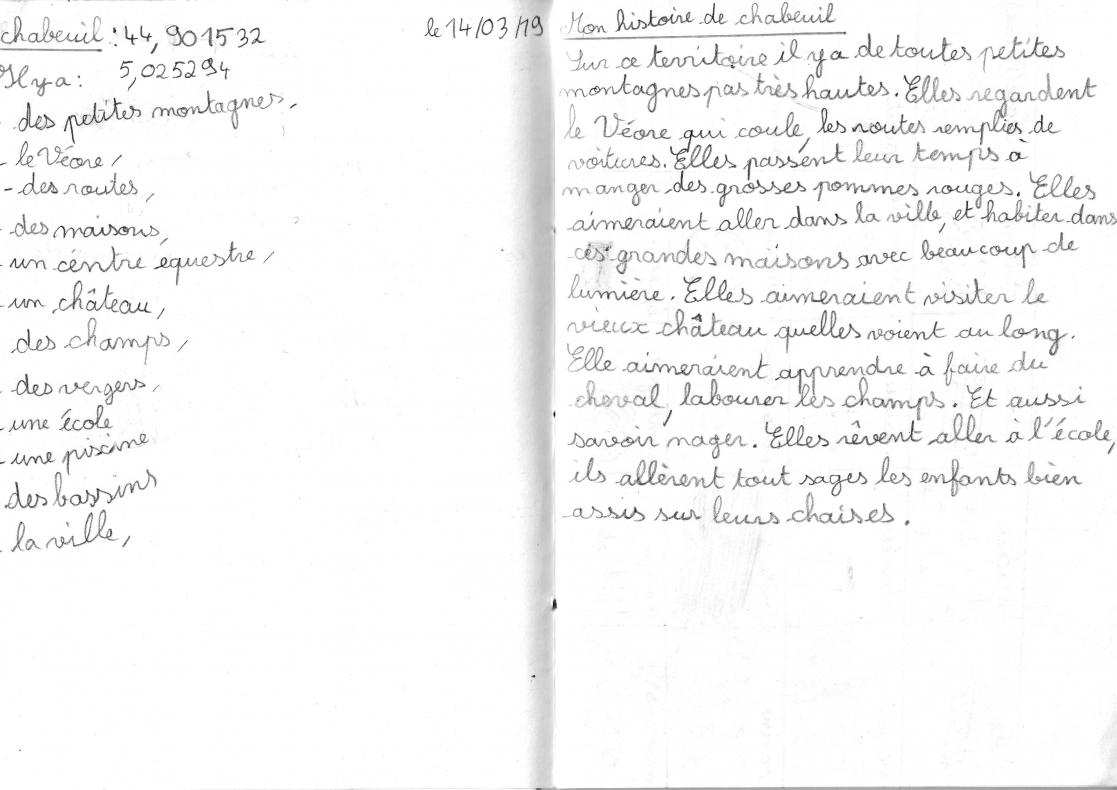 chabeuil : 44,901532
5,025294
le 14/03/19
Il y a :
des petites montagnes,
- le Véore,
- des routes,
- des maisons,
- un centre équestre,
- un château,
des champs,
- des vergers,
- une école
- une piscine
des bassins
- la ville,
Mon histoire de chabeuil
Sur ce territoire il y a de toutes petites
montagnes pas très hautes. Elles regardent
le Véore qui coule, les routes remplies de
voitures. Elles passent leur temps à
manger des grosses pommes rouges. Elles
aimeraient aller dans la ville, et habiter dans
ces grandes maisons avec beaucoup de
lumière. Elles aimeraient visiter le
vieux château quelles voient au long.
Elle aimeraient apprendre à faire du
cheval, labourer les champs. Et aussi
savoir nager. Elles rêvent aller à l'école,
ils allèrent tout sages les enfants bien
assis sur leurs chaises.